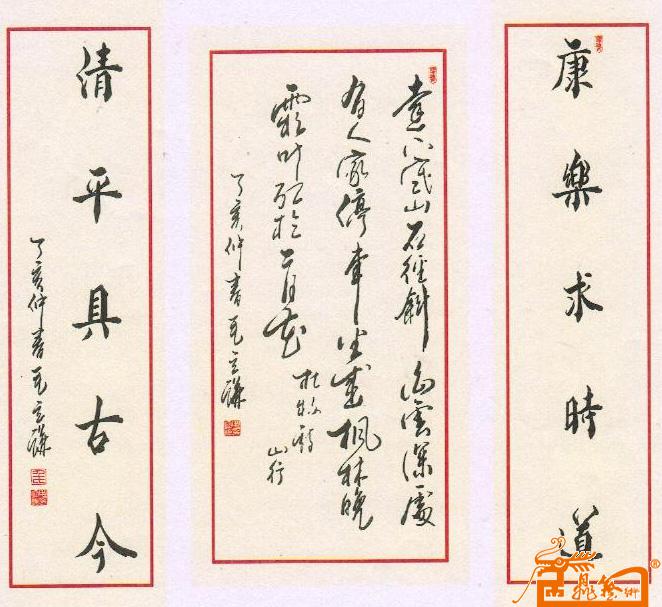 康樂求時道
遠上寒山石徑斜白雲深處
有人家停車坐愛楓林晚
霜叶红於二月花
杜牧詩
山行
丁亥仲春
清平具古今
丁亥仲春